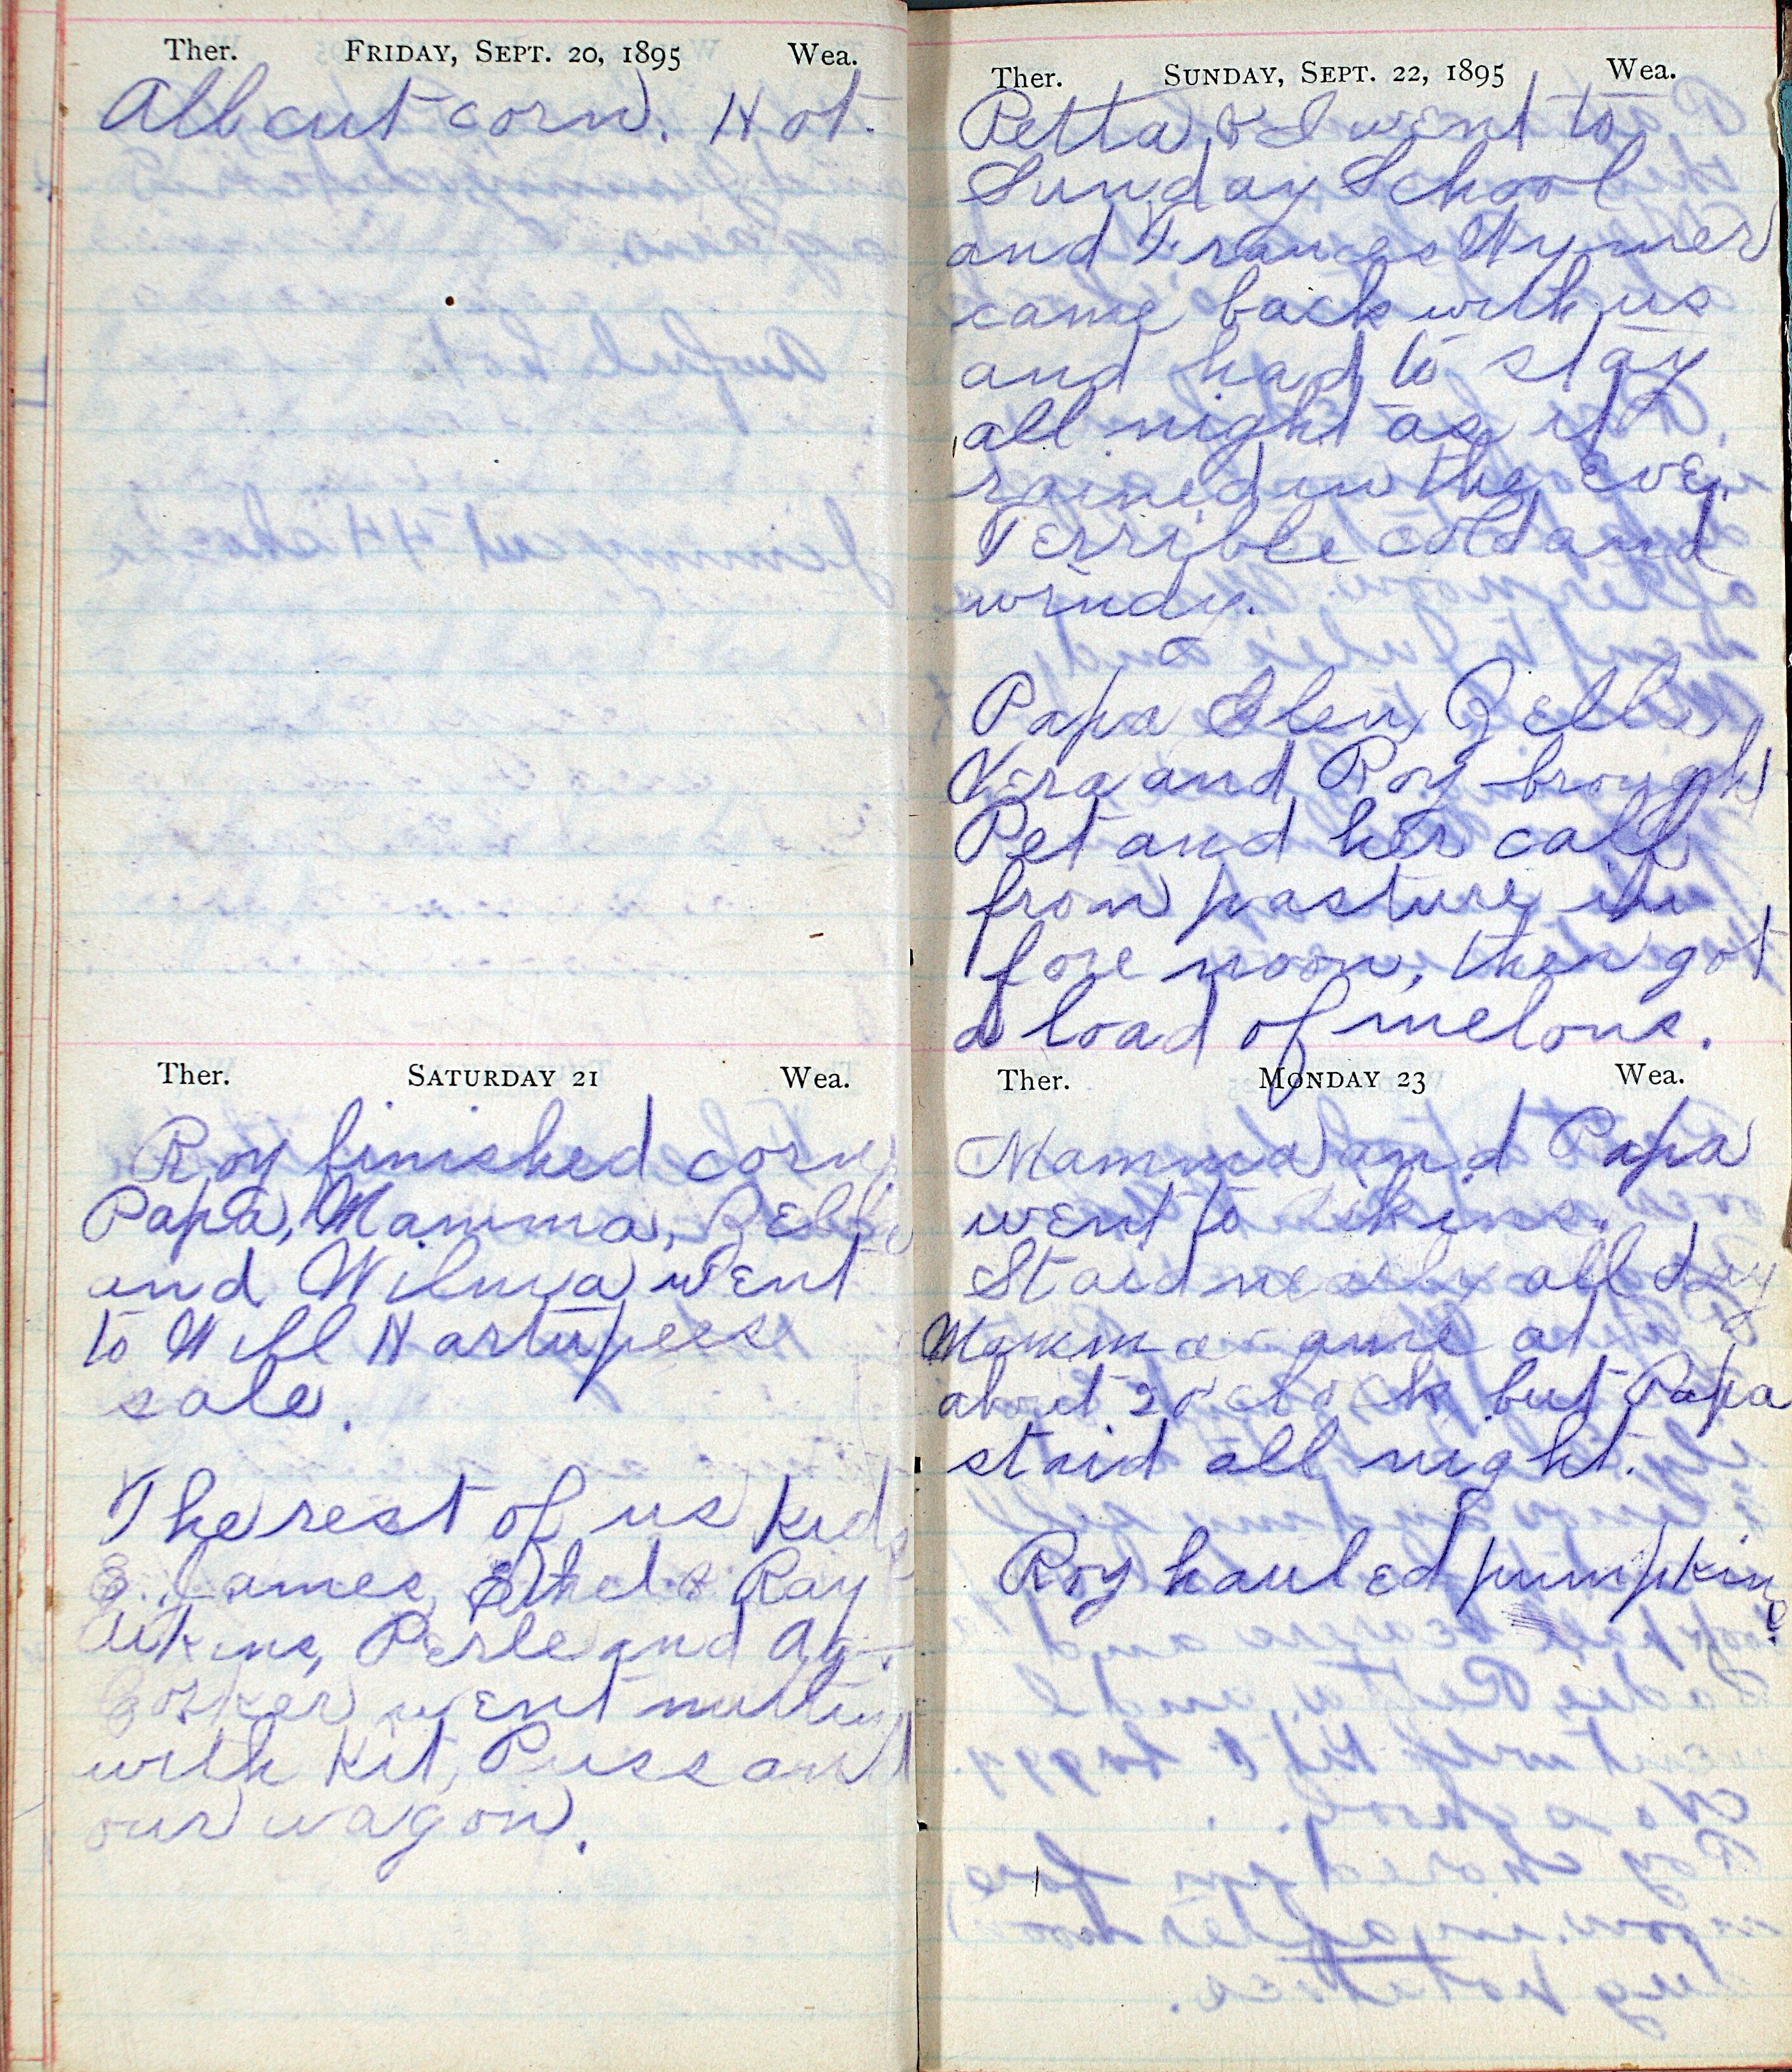 Ther. FRIDAY, SEPT. 20, 1895 Wea.
All cut corn. Hot.
Ther. SATURDAY 21 Wea.
Roy finished corn
Papa, Mamma, Zella
and Wilma went
to Will Hartupees
sale.
The rest of us kids
E. James, Ethel & Ray
Aikins, Perle and
went nutting
with Kit, Puss and
our wagon.
Ther. SUNDAY, SEPT. 22, 1895 Wea.
Retta & I went to
Sunday School
and Frances Wymer
came back with us
and had to stay
all night as it
rained in the Eve.
Terrible cold and
windy.
Papa Glen Zella
Vera and Roy brought
Pet and her calf
from pasture in
fore noon, then got
a load of melons.
Ther. MONDAY 23 Wea.
Mamma and Papa
went to Aikins.
Staid nearly all day
Mamma came at
about 2 o'clock but Papa
staid all night.
Roy hauled pumpkins